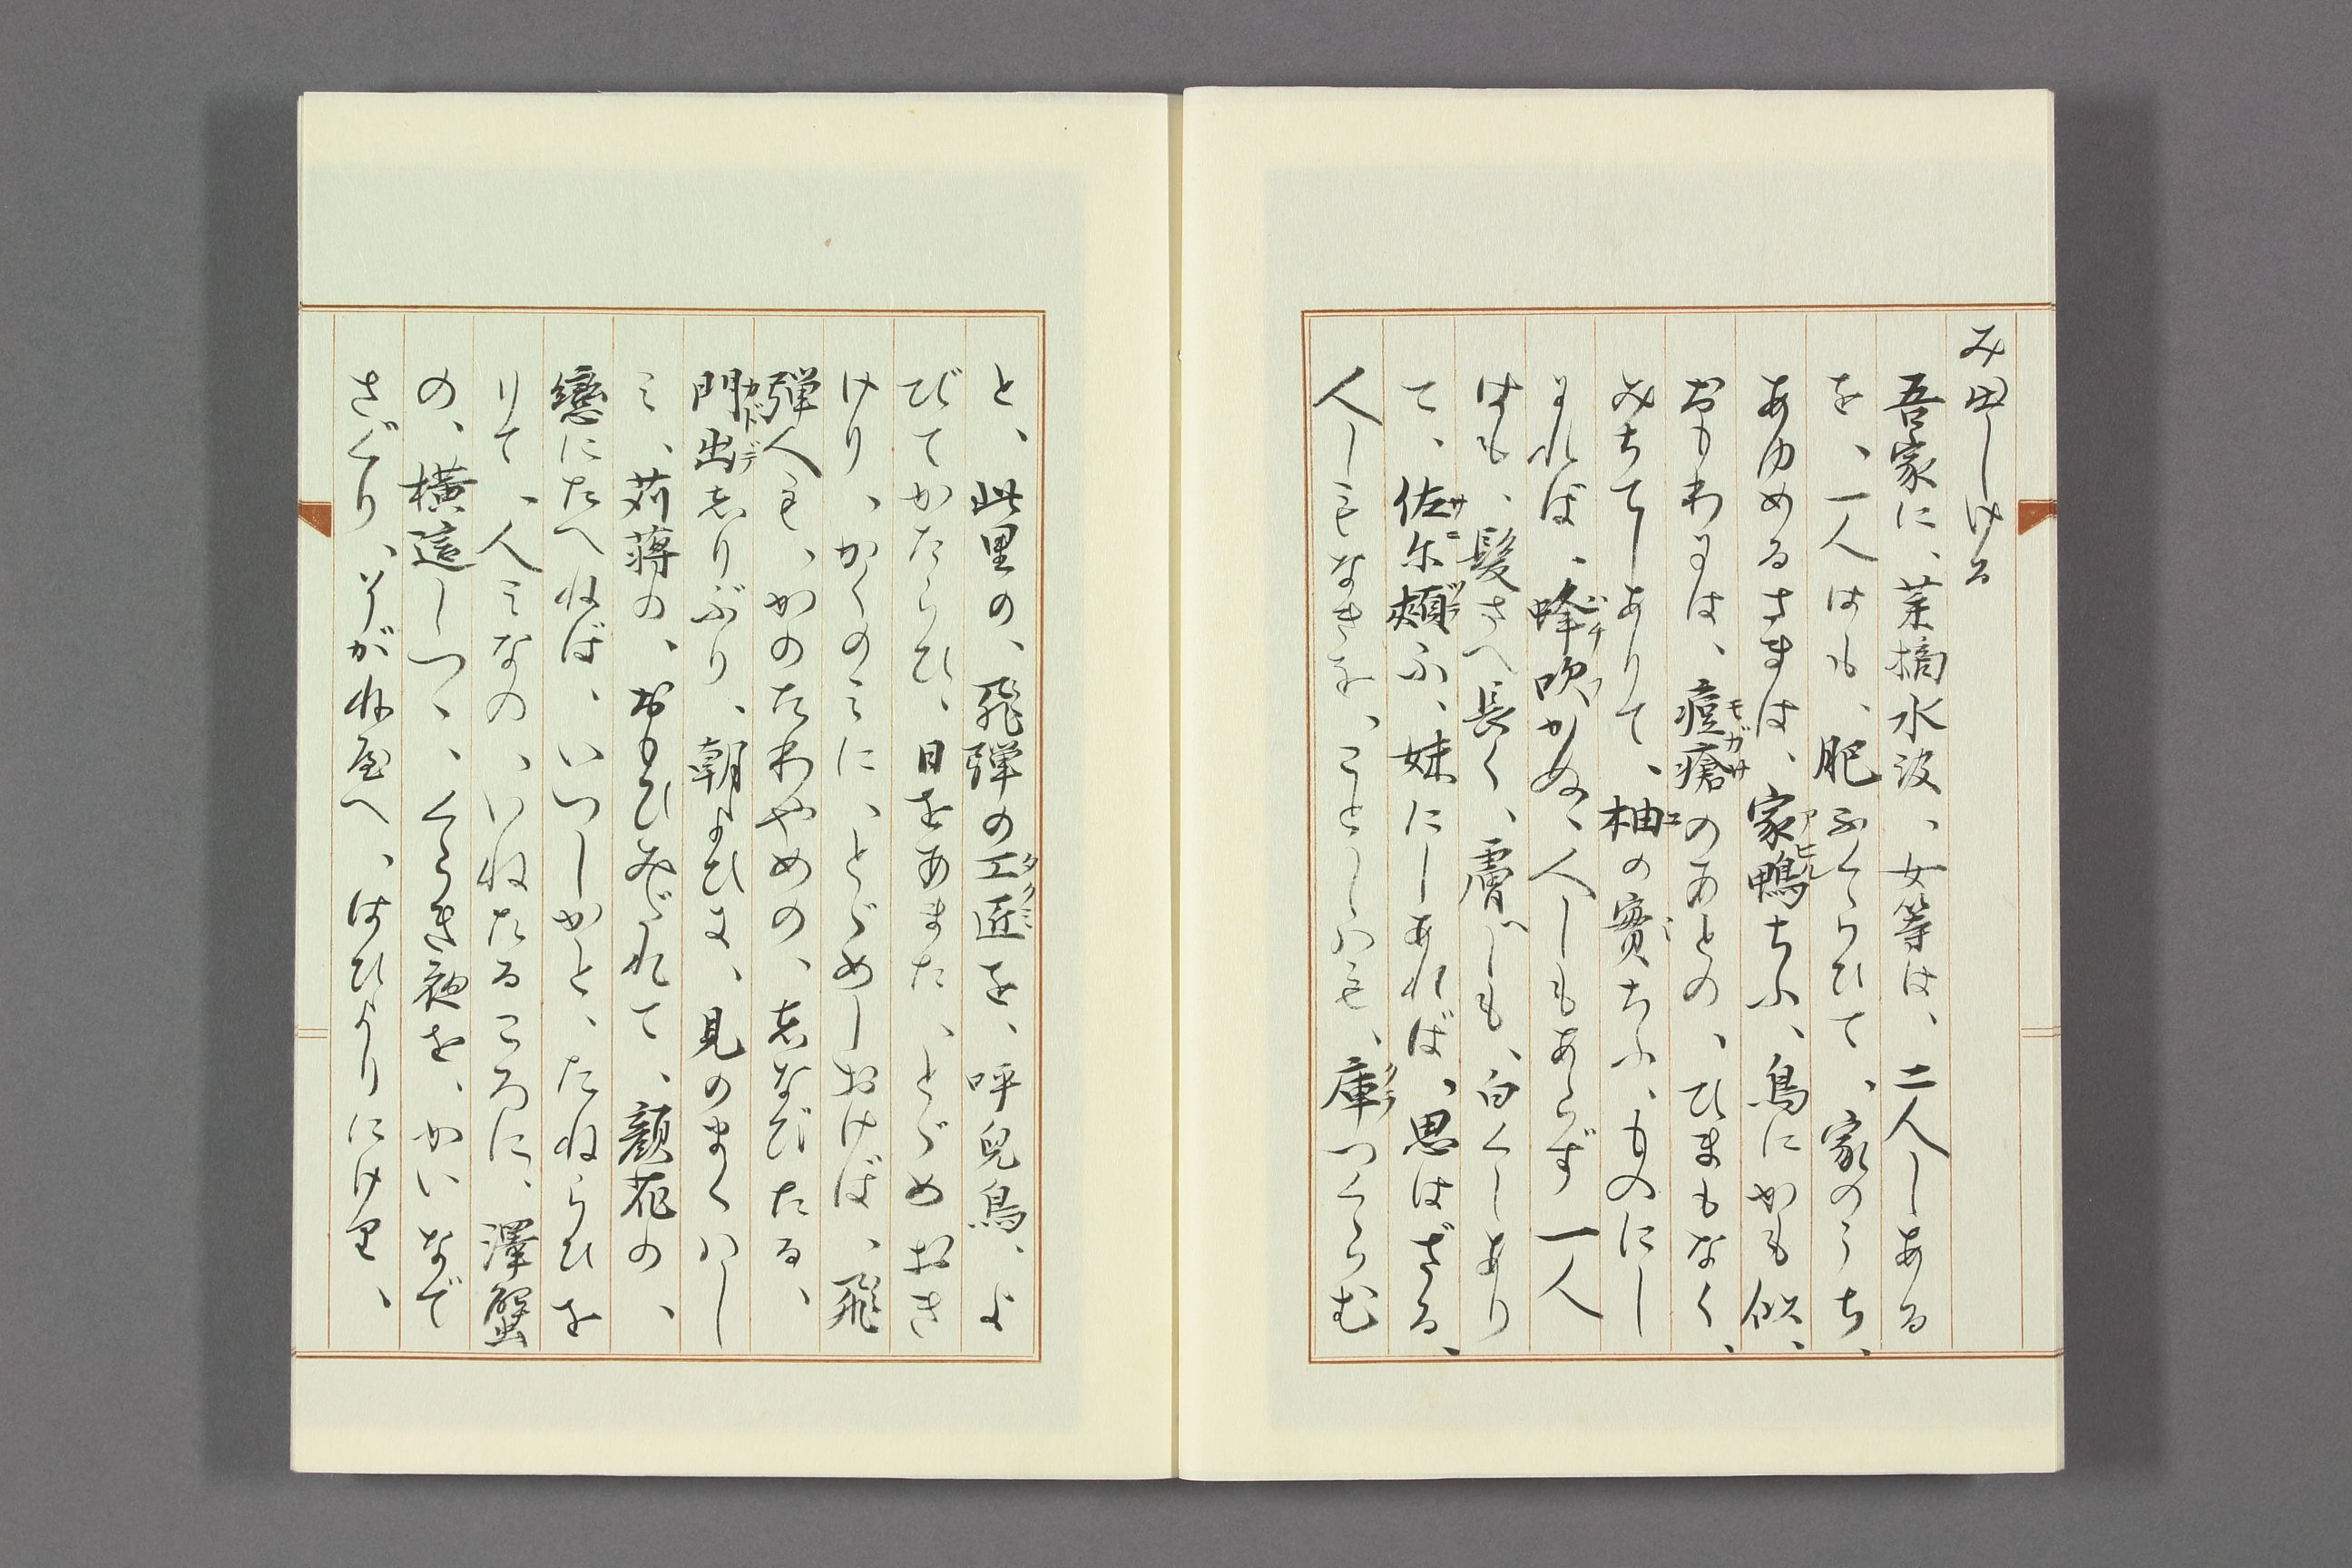 み出しける
吾家に、菜摘水汲、女等は、二人しある
を、一人はも、肥ふくらひて、家のうち、
あゆめるさまは、家鴨ちふ、鳥にかも似、
おもわには、痘瘡のあとの、ひまもなく、
みちてしありて、柚の實ちふ、ものにし
にれば、蜂吹かぬ、人しもあらず一人
はも、髮さへ長く、膚しも、白くしあり
て、佐尓頬ふ、妹にしあれば、思はざる、
人しもなきを、ことしはも、庫つくらむ
と、此里の、飛彈の工匠を、呼兒鳥、よ
びてかたらひ、日をあまた、とゞめおき
けり、かくのみに、とゞめしおけば、飛
彈人も、かのたわやめの、志なびたる、
門出志りぶり、朝よひに、見のまくはし
み、苅薦の、おもひみだれて、顔花の、
戀にたへねば、いつしかと、たねらひを
りて、人みなの、いねたるころに、澤蟹
の、横這しつゝ、くらき夜を、かいなで
さぐり、そがね屋へ、はひよりにけり、